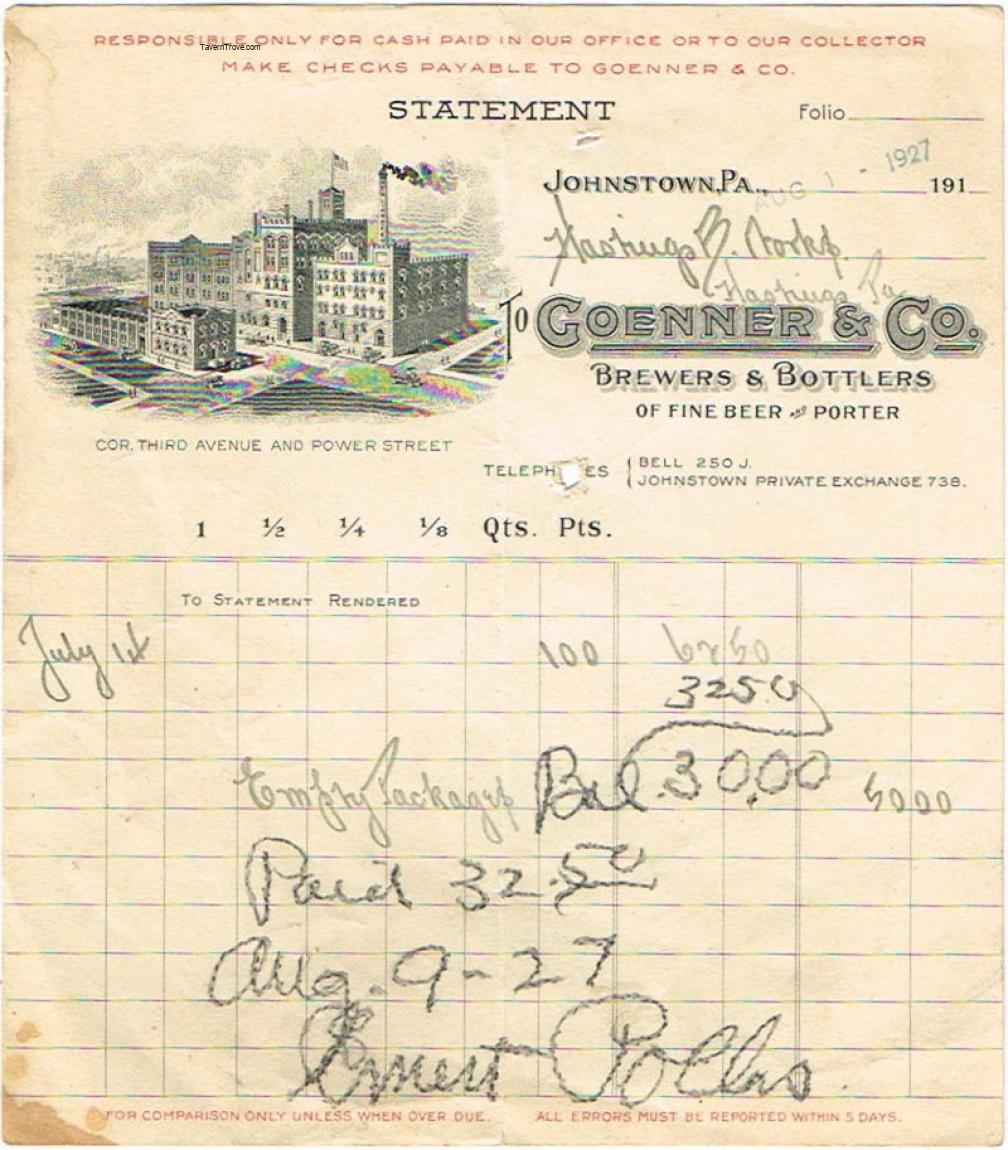 TavernTrove.com
RESPONSIBLE ONLY FOR CASH PAID IN OUR OFFICE OR TO OUR COLLECTOR
MAKE CHECKS PAYABLE TO GOENNER & CO.
STATEMENT
Folio
JOHNSTOWN, PA., AUG 1 - 1927 191
Hastings B. Works.
Hastings, Pa
TO GOENNER & CO.
BREWERS & BOTTLERS
OF FINE BEER AND PORTER
COR. THIRD AVENUE AND POWER STREET
TELEPH ES { BELL 250 J.
JOHNSTOWN PRIVATE EXCHANGE 738.
1 ½ ¼ ⅛ Qts. Pts.
TO STATEMENT RENDERED
July 1st 100 62 50
3250
Empty Packages Bal. 30.00 5000
Paid 32.50
Aug. 9-27
Ernest
FOR COMPARISON ONLY UNLESS WHEN OVER DUE. ALL ERRORS MUST BE REPORTED WITHIN 5 DAYS.